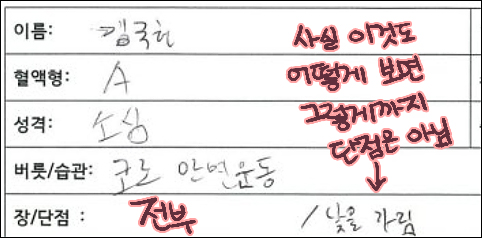 이름: 김국헌
혈액형: A
성격: 소심
버릇/습관: 코로 안면운동
장/단점 : 전부 / 낯을 가림
사실 이것도
어떻게 보면
그렇게까지
단점은 아님